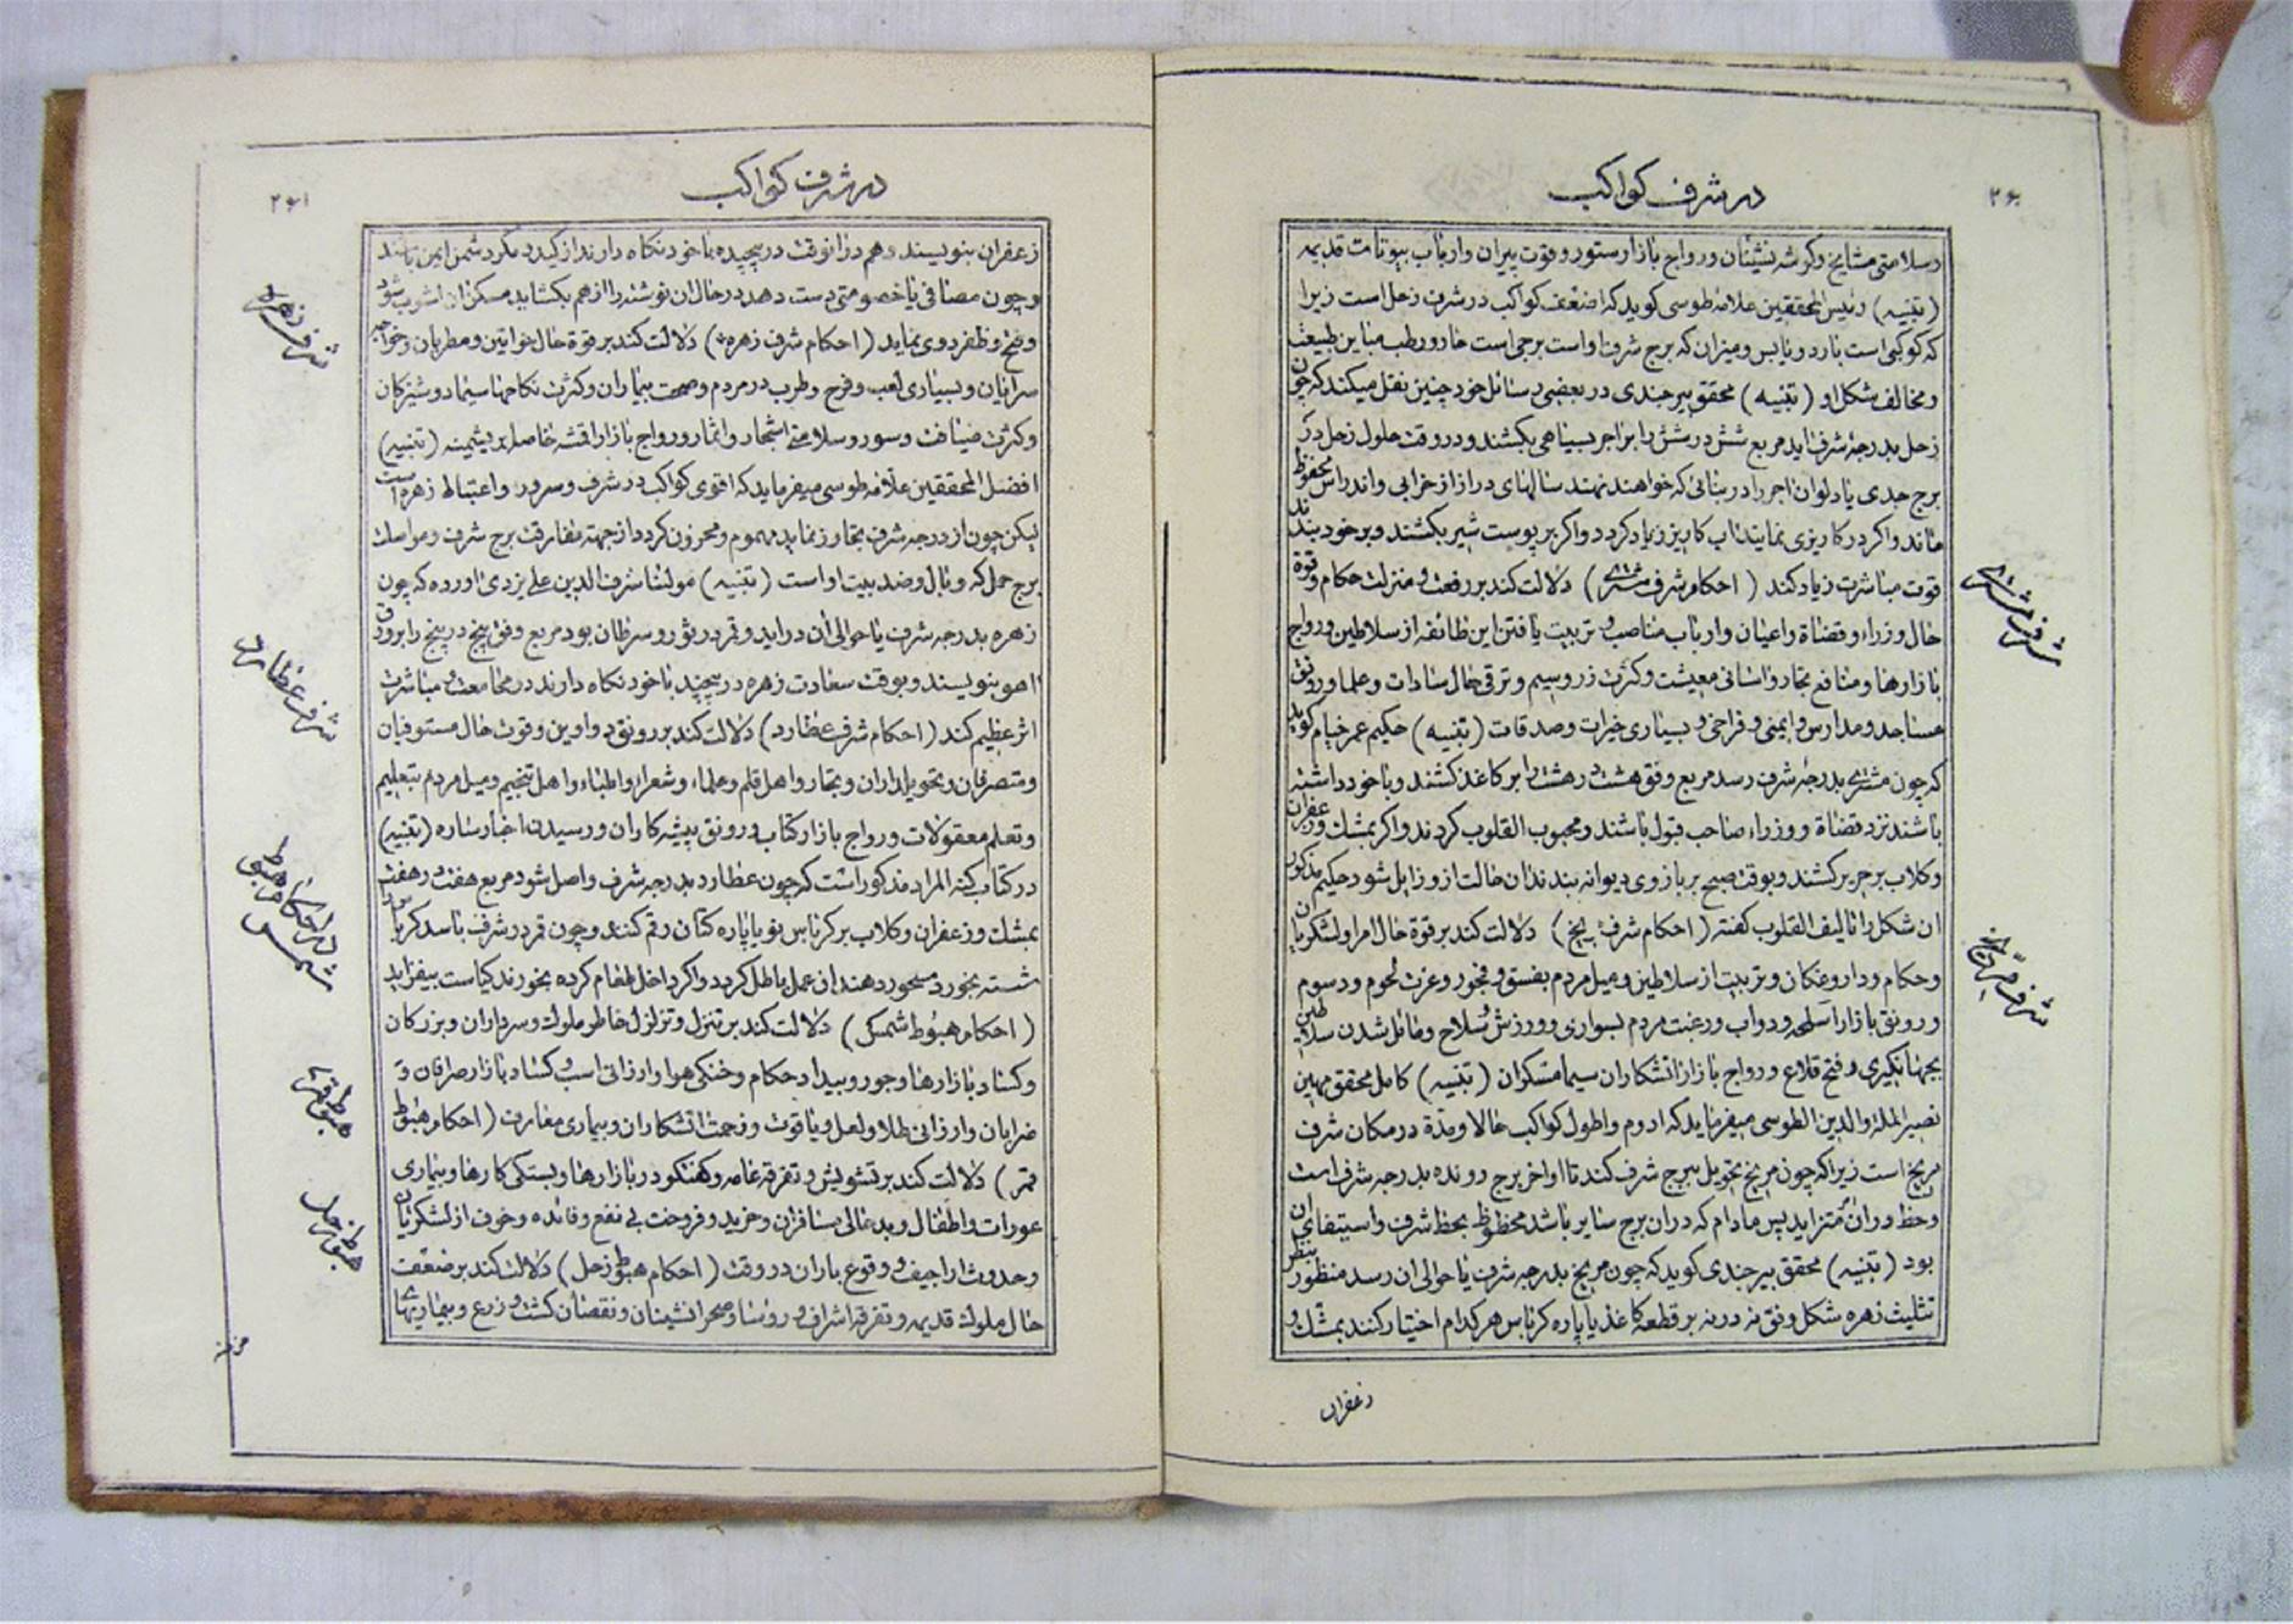 در شرف کواکب
۲۶۰
وسلامتی مشایخ وکوشه نشینان ورواج بازار ستور وقوت پیران وارباب بیوتات قدیمه
(تنبیه) رئیس المحققین علامهٔ طوسی کوید که اضعف کواکب در شرف زحل است زیرا
که کوکبی است بارد ویابس ومیزان که برج شرف اواست برجی است حار ورطب مباین طبیعت
ومخالف شکل او (تنبیه) محقق بیرجندی در بعضی رسائل خود چنین نقل میکند که چون
زحل بدرجهٔ شرف اید مربع شش در شش را بر اجر بسیاهی بکشند ودر وقت حلول زحل در
برج جدی یا دلو ان اجر را در بنائی که خواهند نهند سالهای دراز از خرابی واندراس محفوظ
ماند واکر در کاریزی نمایند اب کاریز زیاد کردد واکر بر پوست شیر بکشند وبر خود بندند
قوت مباشرت زیاد کند (احکام شرف مشتری) دلالت کند بر رفعت و منزلت حکام وقوة
حال وزراء وقضاة واعیان وارباب مناصب و تربیت یافتن این طائفه از سلاطین ورواج
بازارها ومنافع تجار واسانی معیشت وکثرت زر وسیم وترقی حال سادات وعلما ورونق
مساجد ومدارس وایمنی وفراخی و بسیاری خیرات وصدقات (تنبیه) حکیم عمر خیام کوید
که چون مشتری بدرجهٔ شرف رسد مربع وفق هشت در هشت را بر کاغذ کشند وبا خود داشته
باشند نزد قضاة ووزراء صاحب قبول باشند ومحبوب القلوب کردند واکر بمشک وزعفران
وکلاب بر حریر کشند وبوقت صبح بر بازوی دیوانه بندند ان حالت از وزایل شود حکیم مذکور
ان شکل را تالیف القلوب کفته (احکام شرف مریخ) دلالت کند بر قوة حال امرا ولشکریان
وحکام وداروغکان وتربیت از سلاطین ومیل مردم بفسق و فجور وعزت لحوم ودسوم
ورونق بازار اسلحه ودواب ورغبت مردم بسواری وورزش و سلاح ومائل شدن سلاطین
بجهانکیری و فتح قلاع ورواج بازار اتشکاران سیما مسکران (تنبیه) کامل محقق مهین
نصیر الملة والدین الطوسی میفرماید که ادوم واطول کواکب حالا ومدة در مکان شرف
مریخ است زیرا که چون مریخ تحویل ببرج شرف کند تا اواخر برج رونده بدرجه شرف است
وحظ وران متزاید پس مادام که دران برج سایر باشد محظوظ بحظ شرف واستیفای ان
بود (تنبیه) محقق بیرجندی کوید که چون مریخ بدرجه شرف یا حوالی ان رسد منظور بنظر
تثلیث زهره شکل وفق نه در نه بر قطعهٔ کاغذ یا پاره کرباس هر کدام اختیار کنند بمشک و
زعفران
شرف مشتری
شرف مریخ
در شرف کواکب
۲۶۱
زعفران بنویسند وهم دران وقت در پیچیده با خود نکاه دارند از کید ومکر دشمن ایمن باشند
وچون مصافی یا خصومتی دست دهد در حال ان نوشته را از هم بکشاید مسکن ان اشوب شود
وفتح وظفر روی نماید (احکام شرف زهره) دلالت کند بر قوة حال خواتین ومطربان وخواجه
سرایان وبسیاری لعب وفرح وطرب در مردم وصحت بیماران وکثرت نکاحها سیما دوشیزکان
وکثرت ضیافت وسور وسلامتی اشجار واثمار ورواج بازار اقمشه خاصه ابریشمینه (تنبیه)
افضل المحققین علامه طوسی میفرماید که اقوی کواکب در شرف وسرور واغتباط زهره است
لیکن چون از درجه شرف تجاوز نماید مهموم ومحزون کردد از جهة مفارقت برج شرف ومواصلت
برج حمل که وبال وضد بیت اواست (تنبیه) مولانا شرف الدین علی یزدی اورده که چون
زهره بدرجه شرف یا حوالی ان دراید وقمر در ثور وسرطان بود مربع وفق پنج در پنج را بر ورق
اهو بنویسند وبوقت سعادت زهره در پیچند با خود نکاه دارند در مجامعت و مباشرت
اثر عظیم کند (احکام شرف عطارد) دلالت کند بر رونق دواوین وقوت حال مستوفیان
ومتصرفان وتحویلداران وتجار واهل قلم وعلماء وشعرا واطباء واهل تنجیم ومیل مردم بتعلیم
وتعلم معقولات ورواج بازار کتاب ورونق پیشه کاران ورسیدن اخبار ساره (تنبیه)
در کتاب کنه المراد مذکور است که چون عطارد بدرجه شرف واصل شود مربع هفت در هفت
بمشک وزعفران وکلاب بر کرباس نو یا پاره کتان رقم کنند وچون قمر در شرف باشد کرباس را
شسته بخورد مسحور دهند ان عمل باطل کردد واکر داخل طعام کرده بخورند کیاست بیفزاید
(احکام هبوط شمس) دلالت کند بر تنزل وتزلزل خاطر ملوک وسرداران وبزرکان
وکساد بازارها وجور وبیداد حکام وخنکی هوا وارزانی اسب و کساد بازار صرافان و
ضرابان وارزانی طلا ولعل ویاقوت وزحمت اتشکاران وبیماری معارف (احکام هبوط
قمر) دلالت کند بر تشویش و تفرقه عامه وکفتکو در بازارها وبستکی کارها وبیماری
عورات واطفال وبدحالی مسافران وخرید وفروخت بی نفع وفائده وخوف از لشکریان
وحدوث اراجیف و وقوع باران در وقت (احکام هبوط زحل) دلالت کند بر ضعف
حال ملوک قدیمه وتفرقه اشراف و روسا وصحرا نشینان ونقصان کشت و زرع وبیماریهای
مزمنه
شرف زهره
شرف عطارد
در احکام هبوط شمس
هبوط قمر
هبوط زحل